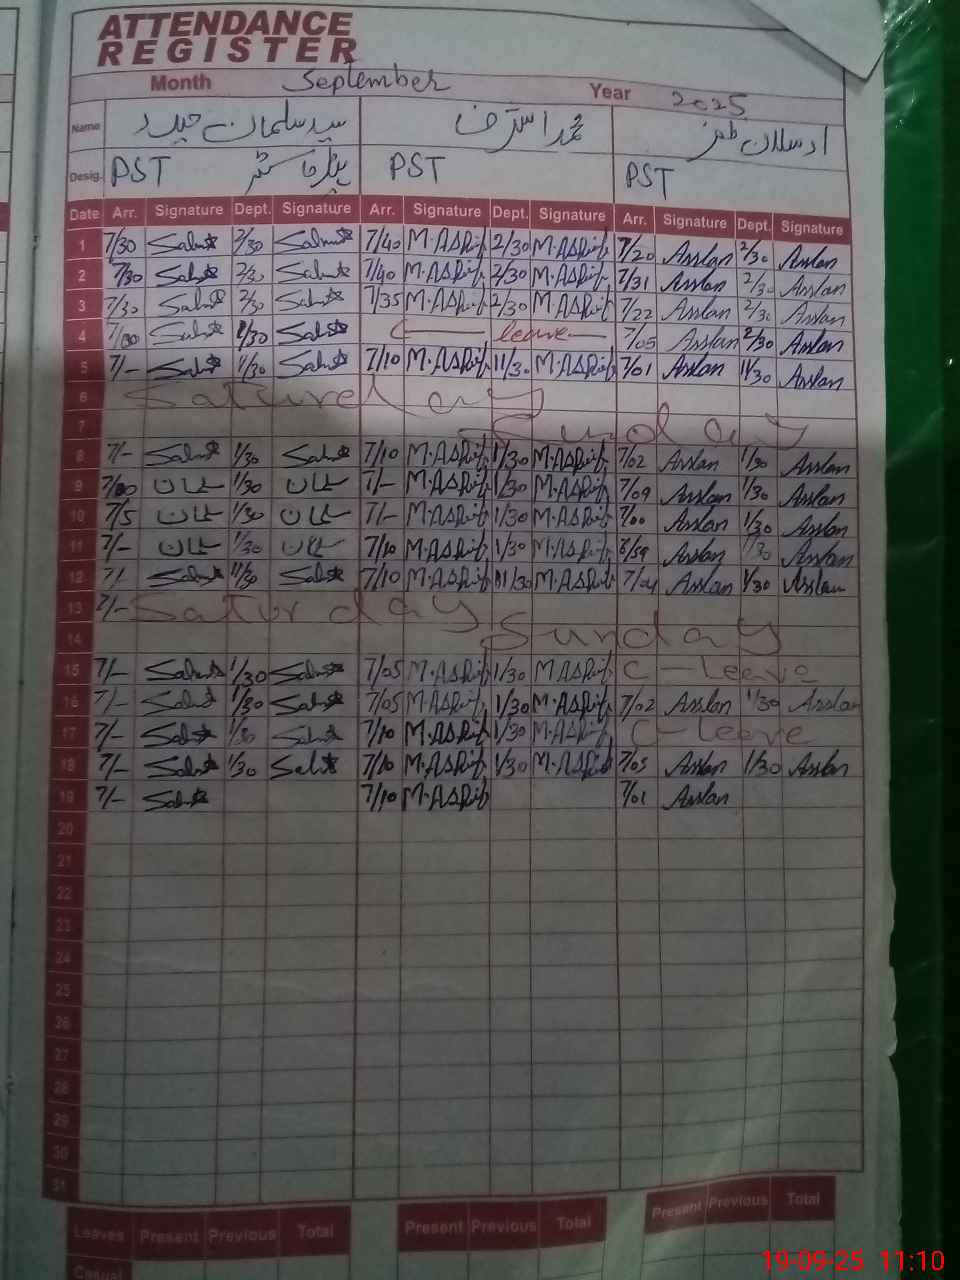 ATTENDANCE
REGISTER
Month September Year 2025
Name سید سلمان حیدر محمد اشرف ارسلان ظفر
Desig. PST PST PST
Date Arr. Signature Dept. Signature Arr. Signature Dept. Signature Arr. Signature Dept. Signature
1 7/30 2/30 7/40 M.ASRif 2/30 M.ASRif 7/20 Arslan 2/30 Arslan
2 7/30 2/30 7/40 M.ASRif 2/30 M.ASRif 7/31 Arslan 2/30 Arslan
3 7/30 2/30 7/35 M.ASRif 2/30 M.ASRif 7/22 Arslan 2/30 Arslan
4 2/30 leave 7/05 Arslan 2/30 Arslan
5 7/- 11/30 7/10 M.ASRif 11/30 M.ASRif 7/01 Arslan 11/30 Arslan
6 Saturday
7 Sunday
8 7/- 1/30 7/10 M.ASRif 1/30 M.ASRif 7/02 Arslan 1/30 Arslan
9 سلمان 1/30 سلمان 7/- M.ASRif 1/30 M.ASRif 7/09 Arslan 1/30 Arslan
10 7/5 سلمان 1/30 سلمان 7/- M.ASRif 1/30 M.ASRif 7/00 Arslan 1/30 Arslan
11 7/- سلمان 1/30 سلمان 7/10 M.ASRif 1/30 M.ASRif 6/59 Arslan 1/30 Arslan
12 7/- 11/30 7/10 M.ASRif 11/30 M.ASRif 7/04 Arslan Arslan
13 7/- Saturday
14 Sunday
15 7/- 1/30 7/05 M.ASRif 1/30 M.ASRif C-Leave
16 7/- 1/30 7/05 M.ASRif 1/30 M.ASRif 7/02 Arslan 1/30 Arslan
17 7/- 1/30 7/10 M.ASRif 1/30 M.ASRif C-Leave
18 7/- 1/30 7/10 M.ASRif 1/30 M.ASRif 7/05 Arslan 1/30 Arslan
19 7/- 7/10 M.ASRif 7/01 Arslan
20
21
22
23
24
25
26
27
28
29
30
31
Leaves Present Previous Total Present Previous Total Present Previous Total
Casual
19-09-25 11:10